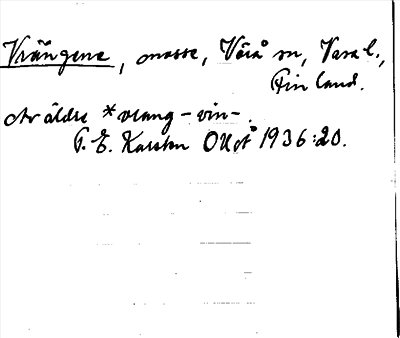 Vrängene, mosse, Vörå sn, Vasa l.,
Finland.
Av äldre *vrang-vin-.
T. E. Karsten ONoÅ 1936:20.